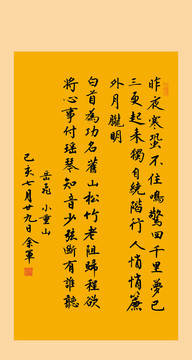 昨夜寒蛩不住鳴驚回千里夢已
三更起來獨自繞階行人悄悄簾
外月朧明
白首為功名舊山松竹老阻歸程欲
將心事付瑤琴知音少弦斷有誰聽
岳飛 小重山
己亥七月廿九日余軍